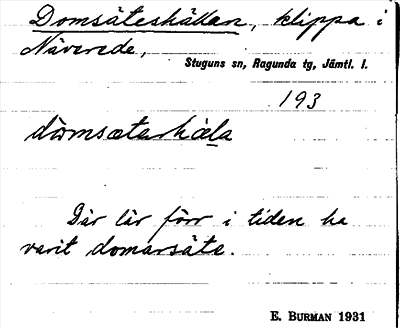 Domsäteshällan, klippa i
Näverede,
Stuguns sn, Ragunda tg, Jämtl. l.
193
dömsætarhæla
Där lär förr i tiden ha
varit domarsäte.
E. BURMAN 1931